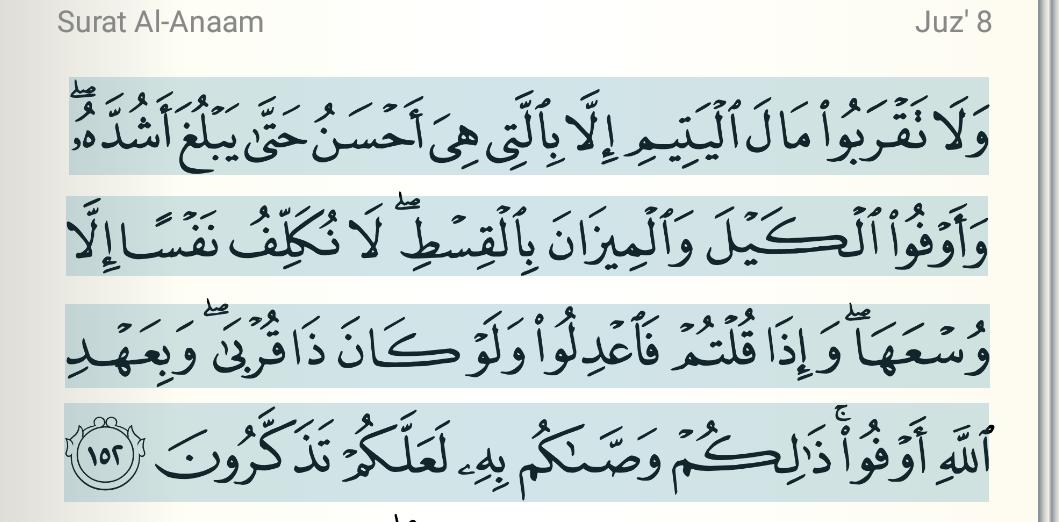 Surat Al-Anaam Juz' 8
وَلَا تَقۡرَبُواْ مَالَ ٱلۡيَتِيمِ إِلَّا بِٱلَّتِي هِيَ أَحۡسَنُ حَتَّىٰ يَبۡلُغَ أَشُدَّهُۥۖ
وَأَوۡفُواْ ٱلۡكَيۡلَ وَٱلۡمِيزَانَ بِٱلۡقِسۡطِۖ لَا نُكَلِّفُ نَفۡسًا إِلَّا
وُسۡعَهَاۖ وَإِذَا قُلۡتُمۡ فَٱعۡدِلُواْ وَلَوۡ كَانَ ذَا قُرۡبَىٰۖ وَبِعَهۡدِ
ٱللَّهِ أَوۡفُواْۚ ذَٰلِكُمۡ وَصَّىٰكُم بِهِۦ لَعَلَّكُمۡ تَذَكَّرُونَ ١٥٢